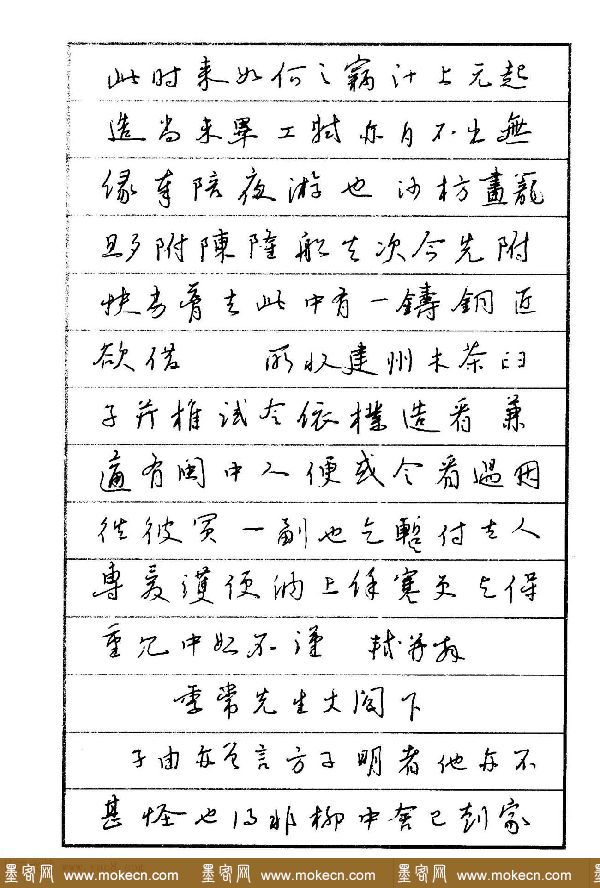 此时来如何之竊计上元起
造尚未畢工轼亦自不出無
缘奉陪夜游也沙枋畫籠
旦夕附陳隆船去次今先附
扶劣膏去此中有一鑄銅匠
欲借 所收建州木茶臼
子并椎试令依樣造看兼
適有闽中人便或令看過因
往彼買一副也乞暫付去人
專爱護便納上餘寒更乞保
重冗中恕不谨 轼再拜
季常先生丈阁下
子由亦曾言方子明者他亦不
甚怪也得非柳中舍已到家
墨客网 www.mokecn.com 墨客网 www.mokecn.com 墨客网 www.mokecn.com